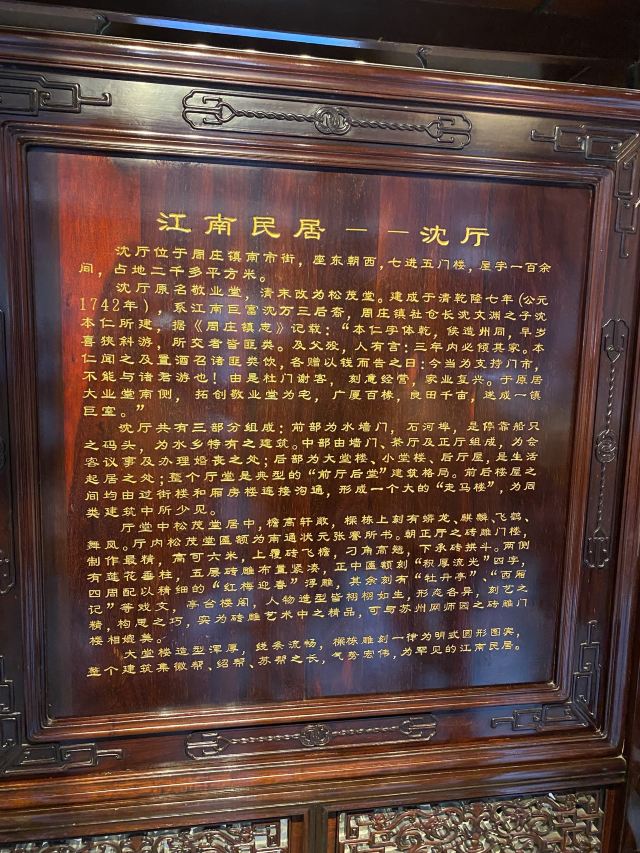 江南民居——沈厅
沈厅位于周庄镇南市街，座东朝西，七进五门楼，屋宇一百余
间，占地二千多平方米。
沈厅原名敬业堂，清末改为松茂堂。建成于清乾隆七年(公元
1742年)，系江南巨富沈万三后裔，周庄镇社仓长沈文渊之子沈
本仁所建，据《周庄镇志》记载：“本仁字体乾，候选州同，早岁
喜狭斜游，所交者皆匪类。及父殁，人有言：三年内必倾其家。本
仁闻之及置酒召诸匪类饮，各赠以钱而告之曰：今当为支持门市，
不能与诸君游也！由是杜门谢客，刻意经营，家业复兴。于原居
大业堂南侧，拓创敬业堂为宅，广厦百椽，良田千亩，遂成一镇
巨室。”
沈厅共有三部分组成：前部为水墙门，石河埠，是停靠船只
之码头，为水乡特有之建筑。中部由墙门、茶厅及正厅组成，为会
客议事及办理婚丧之处；后部为大堂楼、小堂楼、后厅屋，是生活
起居之处；整个厅堂是典型的“前厅后堂”建筑格局。前后楼屋之
间均由过街楼和厢房楼连接沟通，形成一个大的“走马楼”，为同
类建筑中所少见。
厅堂中松茂堂居中，檐高轩敞，樑栋上刻有蟒龙、麒麟、飞鹤、
舞凤。厅内松茂堂匾额为南通状元张謇所书。朝正厅之砖雕门楼，
制作最精，高可六米，上覆砖飞檐，刁角高翘，下承砖拱斗。两侧
有莲花垂柱，五层砖雕布置紧凑，正中匾额刻“积厚流光”四字，
四周配以精细的“红梅迎春”浮雕，其余刻有“牡丹亭”、“西厢
记”等戏文，亭台楼阁，人物造型皆栩栩如生，形态各异，刻艺之
精，构思之巧，实为砖雕艺术中之精品，可与苏州网师园之砖雕门
楼相媲美。
大堂楼造型浑厚，线条流畅，樑栋雕刻一律为明式圆形图案，
整个建筑集徽帮、绍帮、苏帮之长，气势宏伟，为罕见的江南民居。